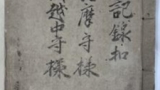 記録扣
摩守様
越中守様